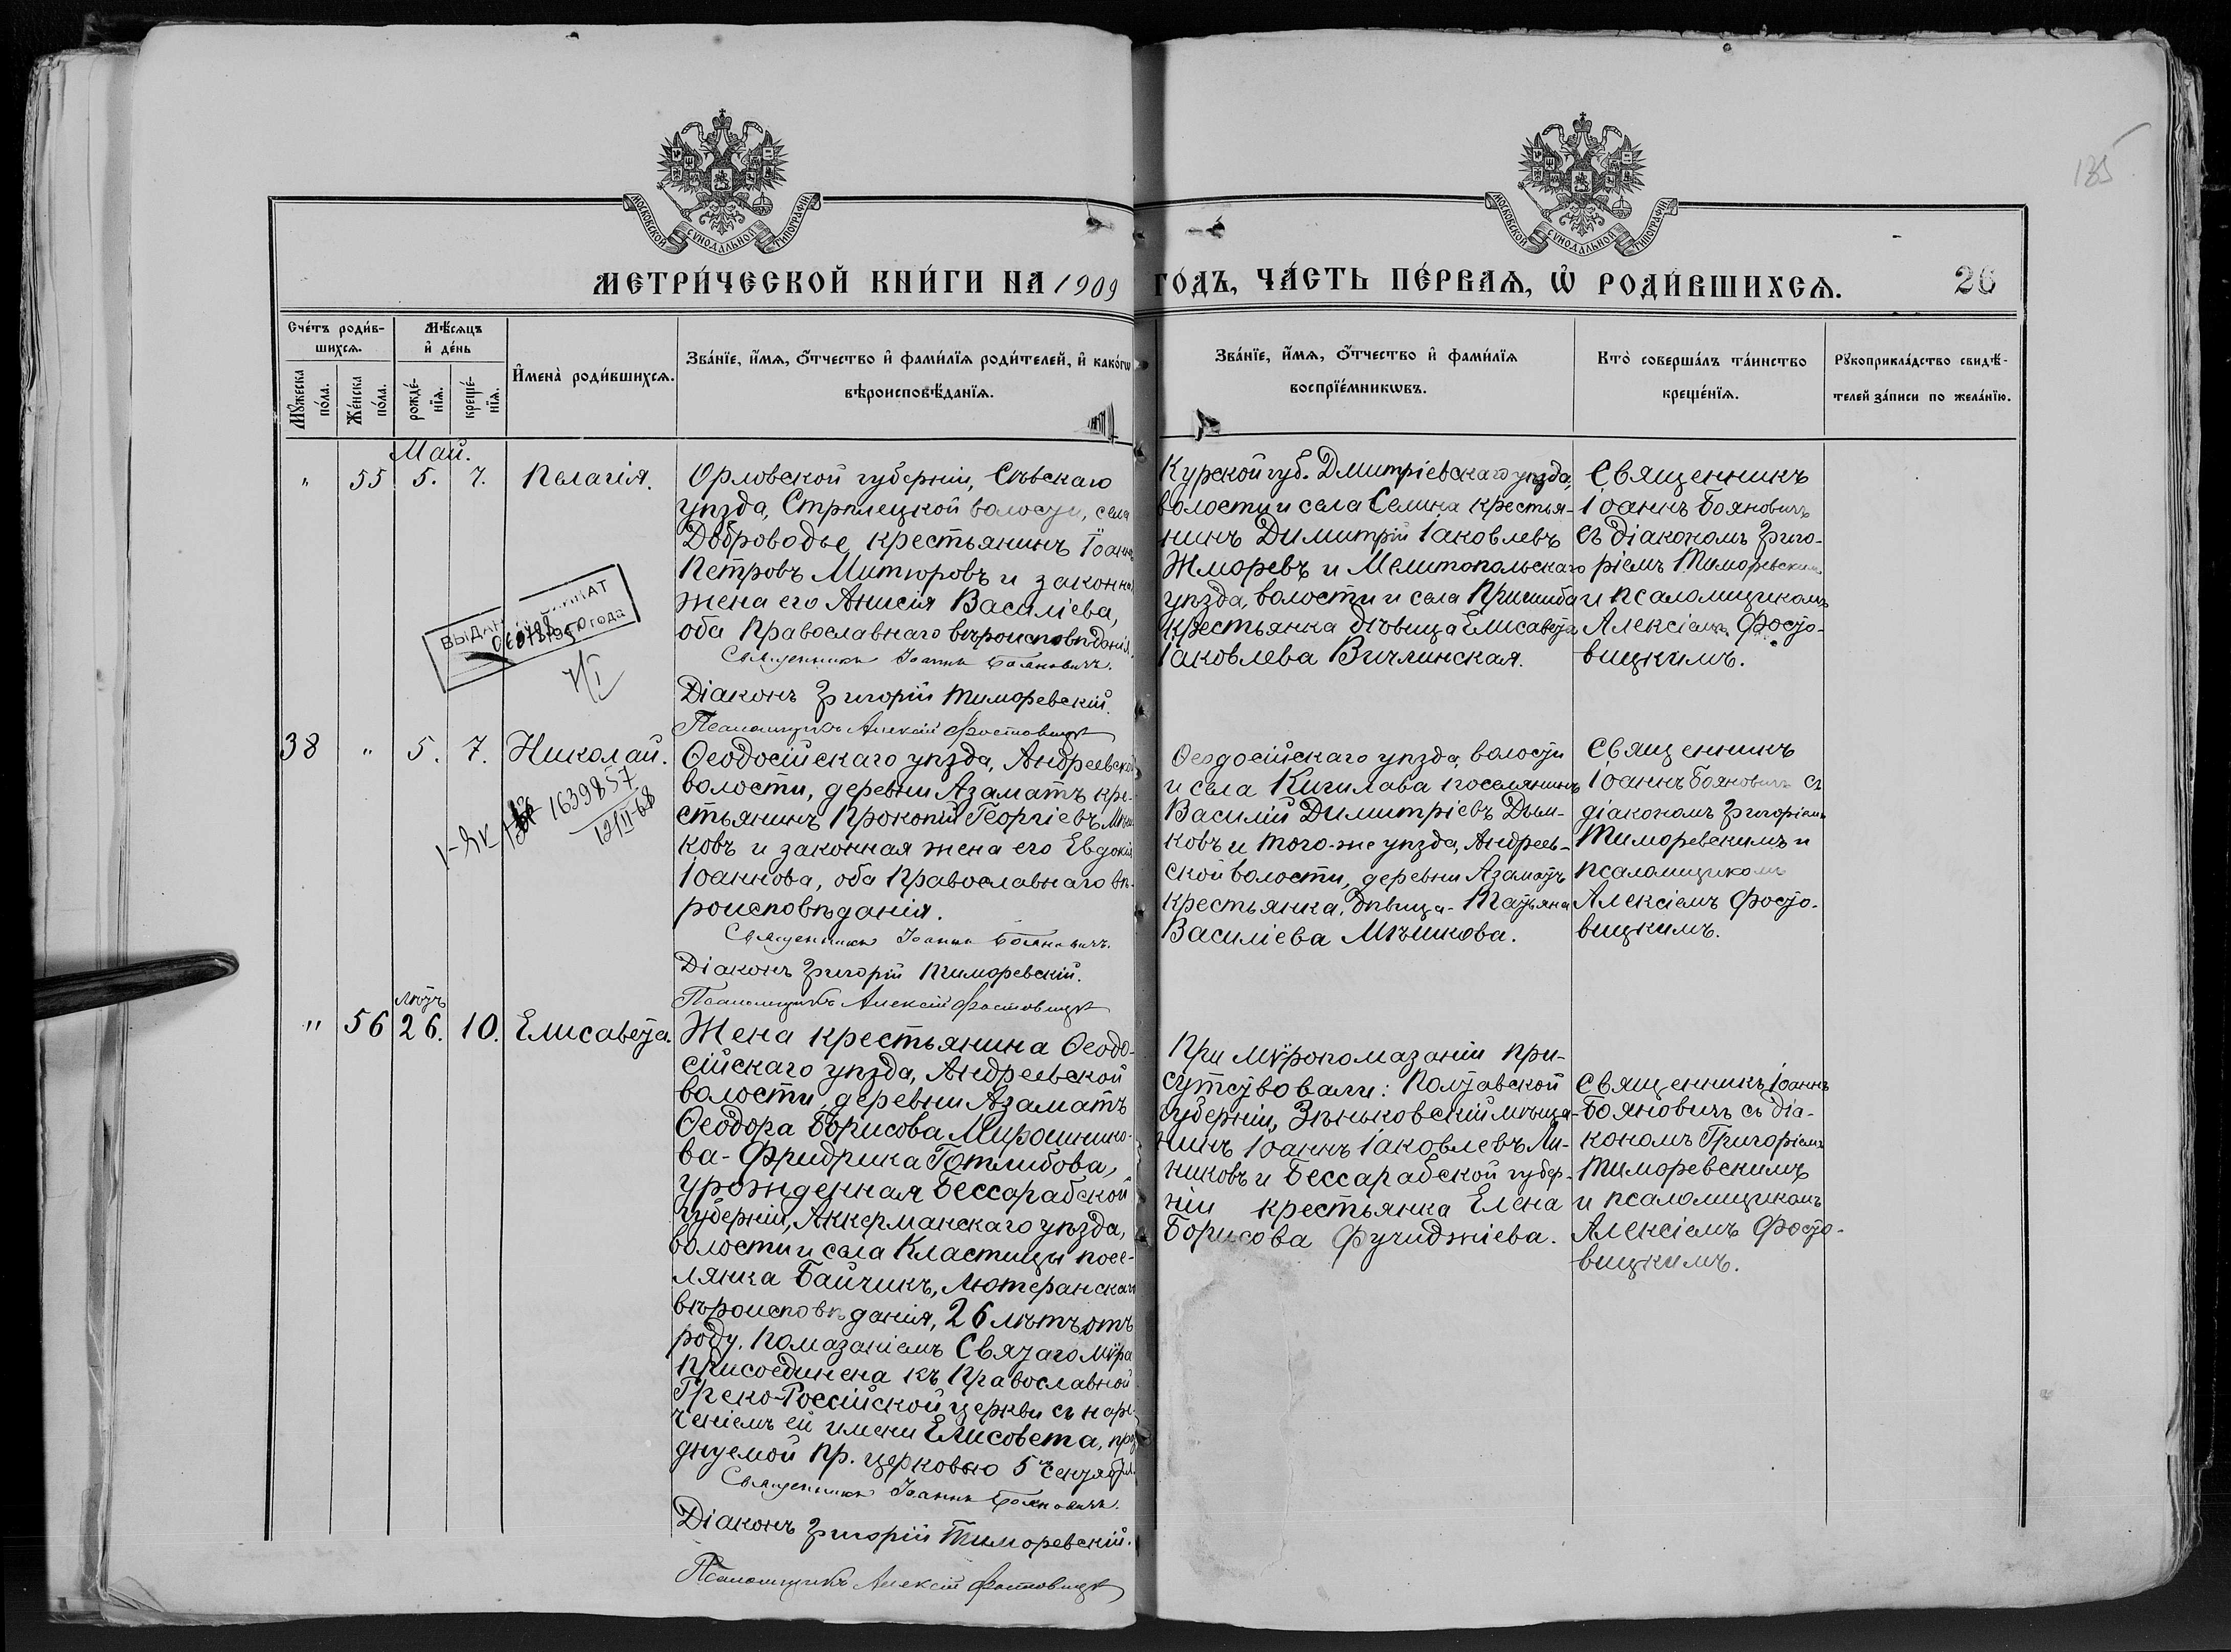 185
МОСКОВСКОЙ СѴНОДАЛЬНОЙ ТИПОГРАФІИ
МОСКОВСКОЙ СѴНОДАЛЬНОЙ ТИПОГРАФІИ
МЕТРИ́ЧЕСКОЙ КНИ́ГИ НА 1909 ГО́ДЪ, ЧА́СТЬ ПЕ́РВАѦ, Ѡ҆ РОДИ́ВШИХСѦ.
26
Сче́тъ роди́в-
шихсѧ.
Мꙋ́жеска
по́ла.
Же́нска
по́ла.
Мѣ́сѧцъ
и҆ де́нь
рожде́-
нїѧ.
креще́-
нїѧ.
И҆мена̀ роди́вшихсѧ.
Зва́нїе, и҆́мѧ, ѻ҆́тчество и҆ фами́лїѧ роди́телей, и҆ како́гѡ
вѣроисповѣ́данїѧ.
Зва́нїе, и҆́мѧ, ѻ҆́тчество и҆ фами́лїѧ
воспрїе́мникѡвъ.
Кто̀ соверша́лъ та́инство
креще́нїѧ.
Рꙋкоприкла́дство свидѣ́-
телей за́писи по жела́нїю.
Май.
" 55 5. 7. Пелагія.
Орловской губерніи, Сѣвскаго
уѣзда, Стрѣлецкой волости, села
Доброводье крестьянинъ Іоаннъ
Петровъ Митюровъ и законная
жена его Анисія Василіева,
оба православнаго вѣроисповѣданія.
Священникъ Іоаннъ Бояновичъ.
Діаконъ Григорій Тиморевскій.
Псаломщикъ Алексій Фостовицкій
Курской губ. Дмитріевскаго уѣзда,
волости и села Селина крестья-
нинъ Димитрій Іаковлевъ
Жморевъ и Мелитопольскаго
уѣзда, волости и села Пришиба
крестьянка дѣвица Елисавета
Іаковлева Вичлинская.
Священникъ
Іоаннъ Бояновичъ
съ діакономъ Григо-
ріемъ Тиморевским
и псаломщикомъ
Алексіемъ Фосто-
вицкимъ.
ВЫДАН
года
38 " 5. 7. Николай.
1639857
12/II-68
Ѳеодосійскаго уѣзда, Андреевской
волости, деревни Азаматъ кре-
стьянинъ Прокопій Георгіевъ Мѣш
ковъ и законная жена его Евдокія
Іоаннова, оба православнаго вѣ-
роисповѣданія.
Священникъ Іоаннъ Бояновичъ.
Діаконъ Григорій Тиморевскій.
Псаломщикъ Алексій Фостовицкій
Ѳеодосійскаго уѣзда, волости
и села Кишлава поселянинъ
Василій Димитріевъ Дым-
ковъ и того-же уѣзда, Андреев-
ской волости, деревни Азаматъ
крестьянка, дѣвица - Татьяна
Василіева Мѣшкова.
Священникъ
Іоаннъ Бояновичъ съ
діакономъ Григоріемъ
Тиморевскимъ и
псаломщикомъ
Алексіемъ Фосто-
вицкимъ.
" 56 26. 10. Елисавета.
Жена крестьянина Ѳеодо-
сійскаго уѣзда, Андреевской
волости, деревни Азаматъ
Ѳеодора Борисова Мирошнико-
ва - Фридрика Готлибова,
урожденная Бессарабской
губерніи, Аккерманскаго уѣзда,
волости и села Кластицы посе-
лянка Байчикъ, лютеранскаго
вѣроисповѣданія, 26 лѣтъ отъ
роду. Помазаніемъ Святаго мѵра
присоединена къ Православной
Греко-Россійской церкви съ наре-
ченіемъ ей имени Елисовета, праз
днуемой пр. церковью 5го Сентября.
Священникъ Іоаннъ Бояновичъ.
Діаконъ Григорій Тиморевскій.
Псаломщикъ Алексій Фостовицкій
При мѵропомазаніи при-
сутствовали: Полтавской
губерніи, Зѣньковскій мѣща-
нинъ Іоаннъ Іаковлевъ Ли-
никовъ и Бессарабской губер-
ніи крестьянка Елена
Борисова Фучиджіева.
Священникъ Іоаннъ
Бояновичъ съ діа-
кономъ Григоріемъ
Тиморевскимъ
и псаломщикомъ
Алексіемъ Фосто-
вицкимъ.